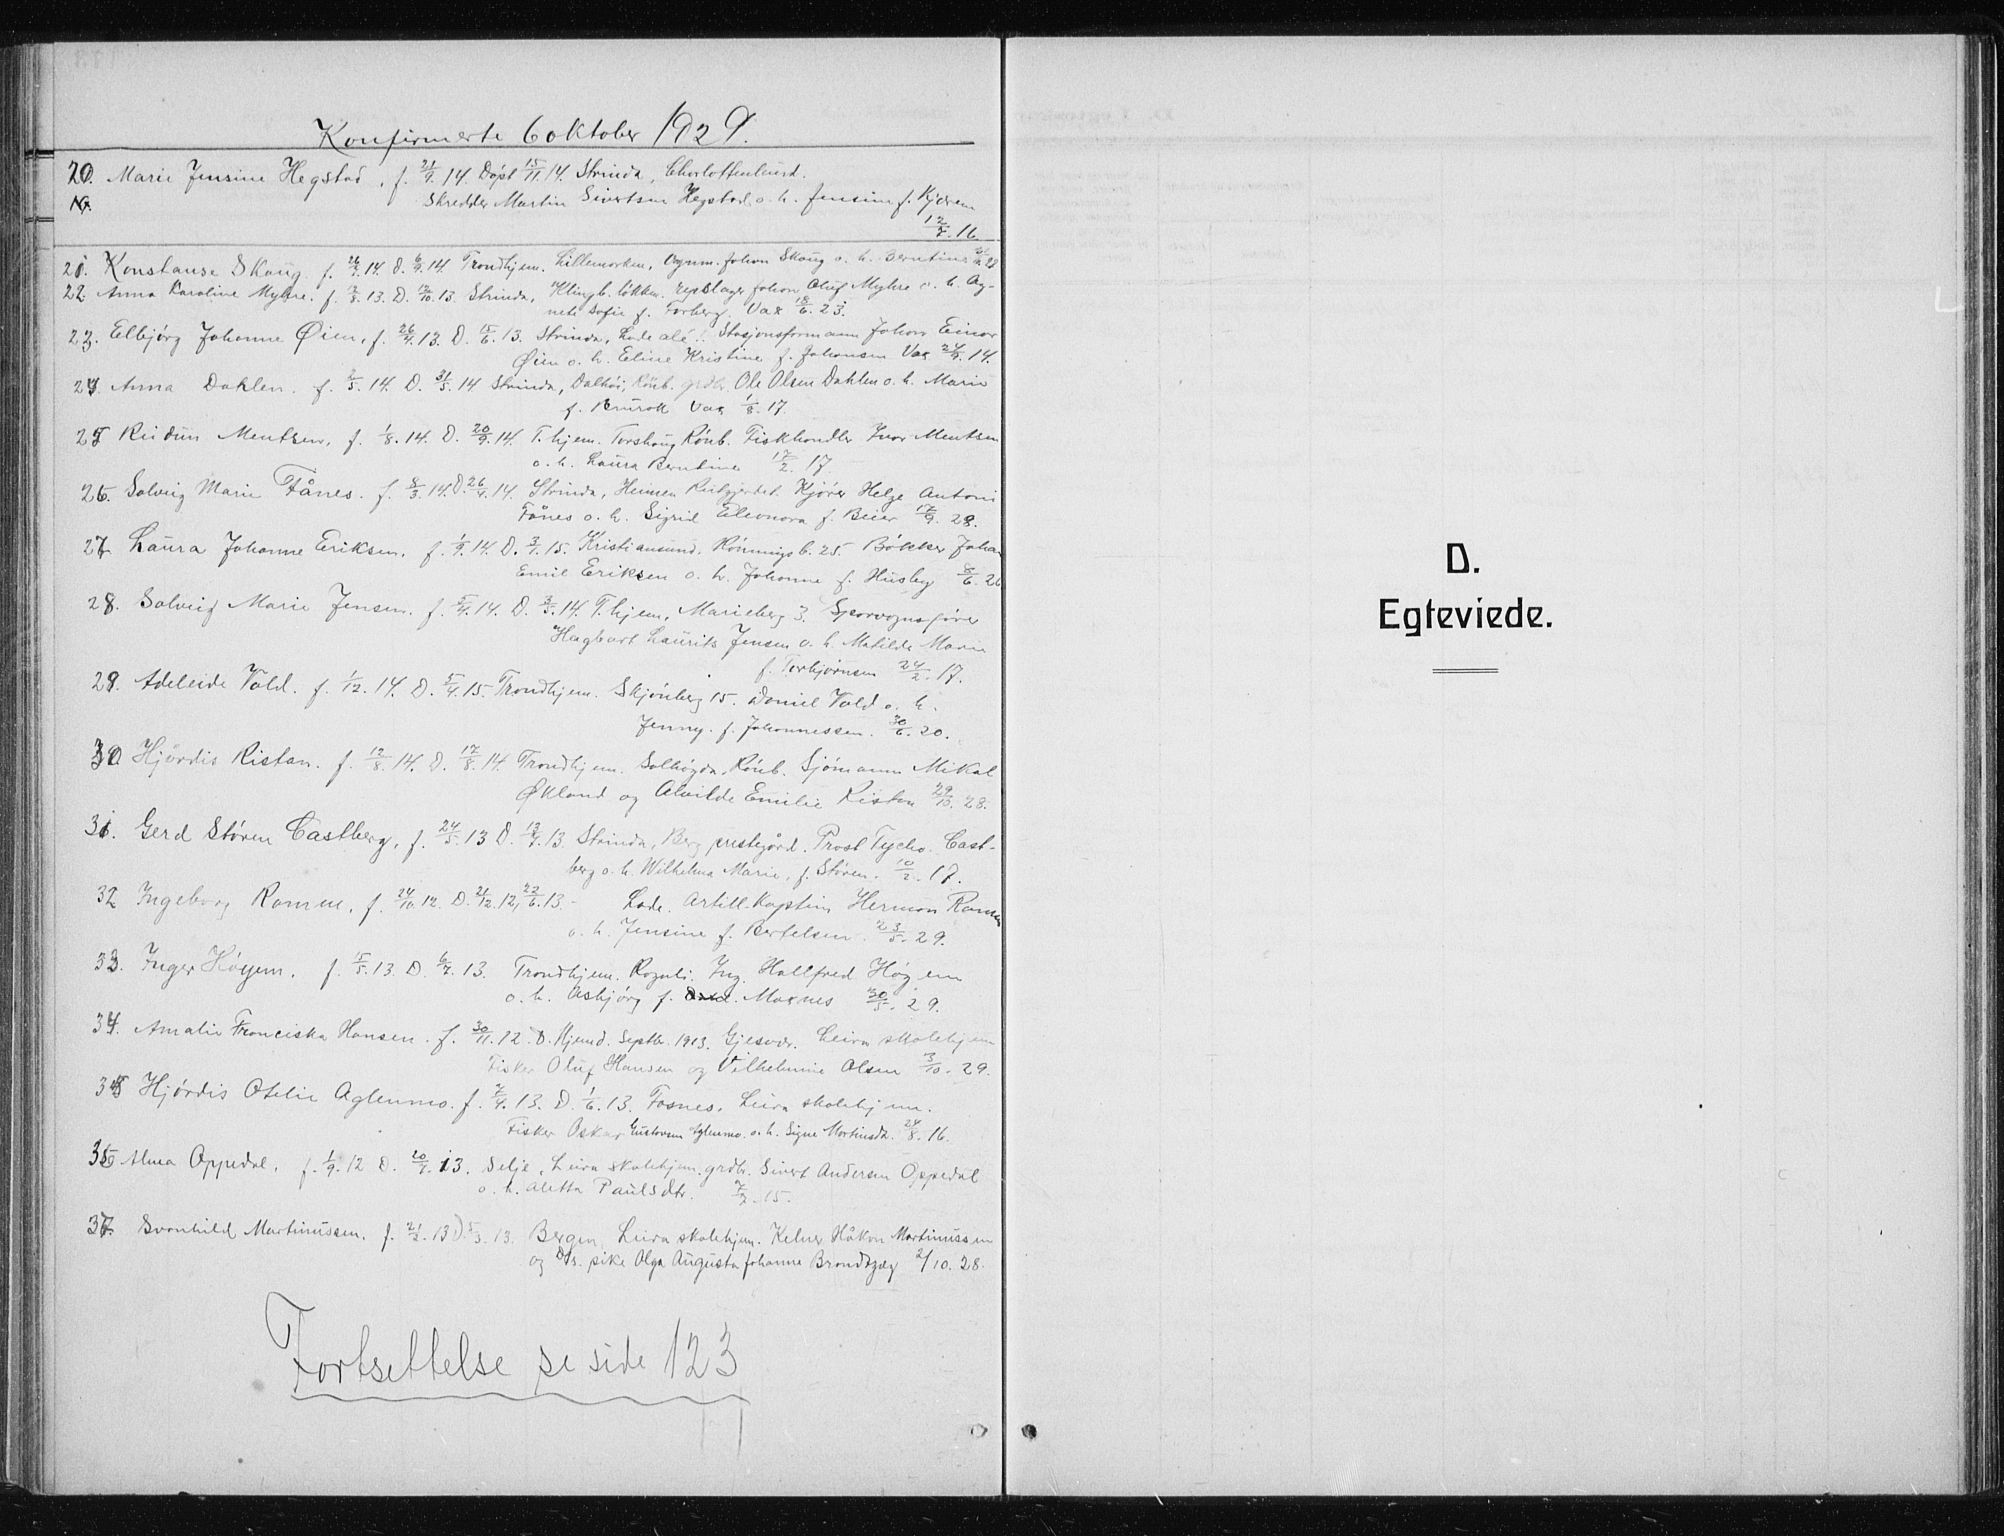 Konfirmerte 6 oktober 1929.
20. Marie Jensine Hegstad, f. 21/9. 14. Døpt 15/11. 14. Strinda, Charlottenlund.
Skredder Martin Sivertsen Hegstad o. h. Jensine f. Kjerem
12/7. 16
21. Konstanse Skaug. f. 26/7. 14. D. 6/9. 14. Trondhjem. Lillemarken, Johan Skaug o. h. Berntine
22. Anna Karoline Myhre. f. 7/8. 13. D. 12/10. 13. Strinda, Klingb. løkken. repslager Johan Oluf Myhre o. h. Ag-
nete Sofie f. Forberg. Vax 18/6. 23.
23. Elbjørg Johanne Øien, f. 26/4. 13. D. 15/6. 13. Strinda, Lade alé. Stasjonsformann Johan Einar
Øien o. h. Eline Kristine f. Johansen Vax 24/9. 14.
24. Anna Dahlen. f. 2/5. 14. D. 31/5. 14 Strinda, Dalhøi, Rønb. grdbr. Ole Olsen Dahlen o. h. Marie
f. Brurok Vax 1/8. 17.
25 Reidun Mentsen, f. 1/8. 14. D. 20/9. 14. T.hjem. Torshaug Rønb. Fiskhandler Ivar Mentsen
o. h. Laura Berntine 17/2. 17.
26. Solveig Marie Fånes. f. 8/3. 14. D. 26/4. 14. Strinda, Heimen Kjører Helge Antoni
Fånes o. h. Sigrid Eleonora f. Beier 17/9. 28.
27. Laura Johanne Eriksen. f. 1/9. 14. D. 3/1. 15. Kristiansund. Rønningsb. 25 Bøkker Johan
Emil Eriksen o. h. Johanne f. Husby 8/6. 26
28. Solveig Marie Jensen. f. 5/4. 14. D. 3/5. 14. T.hjem, Marieberg 3. Sporvognsfører
Hagbart Laurits Jensen o. h. Matilde Marie
f. Torbjørnsen 24/2. 17.
29. Adeleide Vold. f. 1/12. 14. D. 5/4. 15. Trondhjem. Skjønberg 15. Daniel Vold o. h.
Jenny. f. Johannessen. 30/6. 20.
30 Hjørdis Ristan. f. 12/8. 14. D. 17/8. 14. Trondhjem. Solhøgda, Rønb. Sjømann Mikal
Økland og Alvilde Emilie Ristan 29/10. 28.
31. Gerd Støren Castberg, f. 24/5. 13 D. 13/7. 13. Strinda, Berg prestegård. Prost Tycho Cast-
berg o. h. Wilhelma Marie, f. Støren. 10/2. 17.
32 Ingeborg Ramm, f. 24/10. 12. D. 21/12. 12, 22/6. 13. - Lade. Artill. Kaptein Herman Ramm
o. h. Jensine f. Bertelsen. 23/5. 29.
33. Inger Høyem. f. 5/5. 13. D. 6/7. 13. Trondhjem. Rognli. Ing. Hallfred Høyem
o. h. Asbjørg f. Moxnes 30/5. 29.
34. Amalie Franciska Hansen. f. 30/11. 12. D. Hjemd. Septbr. 1913. Gjesvær. Leira skolehjem
Fisker Oluf Hansen og Vilhelmine Olsen 3/10. 29.
35 Hjørdis Otelie Aglenmo. f. 7/4. 13. D. 1/6. 13. Fosnes. Leira skolehjem.
Fisker Oskar Gustavsen Aglenmo. o. h. Signe Martinsdtr. 24/8. 16.
36 Alma Oppedal, f. 1/9. 12 D. 20/7. 13. Selje, Leira skolehjem. grdbr. Sivert Andersen Oppedal
o. h. Aletta Paulsdtr. 7/2. 15.
37. Svanhild Martinussen. f. 21/2. 13 D. 5/3. 13. Bergen, Leira skolehjem. Kelner Håkon Martinussen
og pike Olga Augusta Johanne 2/10. 28.
Fortsettelse se side 123
D.
Egteviede.